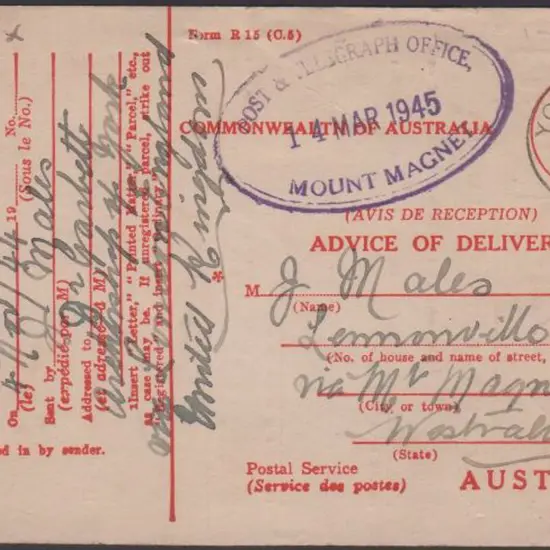 Form R 15 (C.5)
POST & TELEGRAPH OFFICE,
14 MAR 1945
MOUNT MAGNET
COMMONWEALTH OF AUSTRALIA
YO
(AVIS DE RECEPTION)
ADVICE OF DELIVER
M J Males
(Name)
Lennonville
(No. of house and name of street,
via Mt Magn
(City or town)
Westralia
(State)
Postal Service
(Service des postes)
AUST
On 4 Nov 44 19 No.
(le) (Sous le No.)
Sent by J Males
(expédié par M)
Addressed to Dr Garbett
(et adressé à M)
Archbishop of York
England
United Kingdom
1Insert "Letter," "Printed Matter," "Parcel," etc.,
as case may be. If unregistered parcel, strike out
"Registered" and insert "Ordinary"
*
ed in by sender.